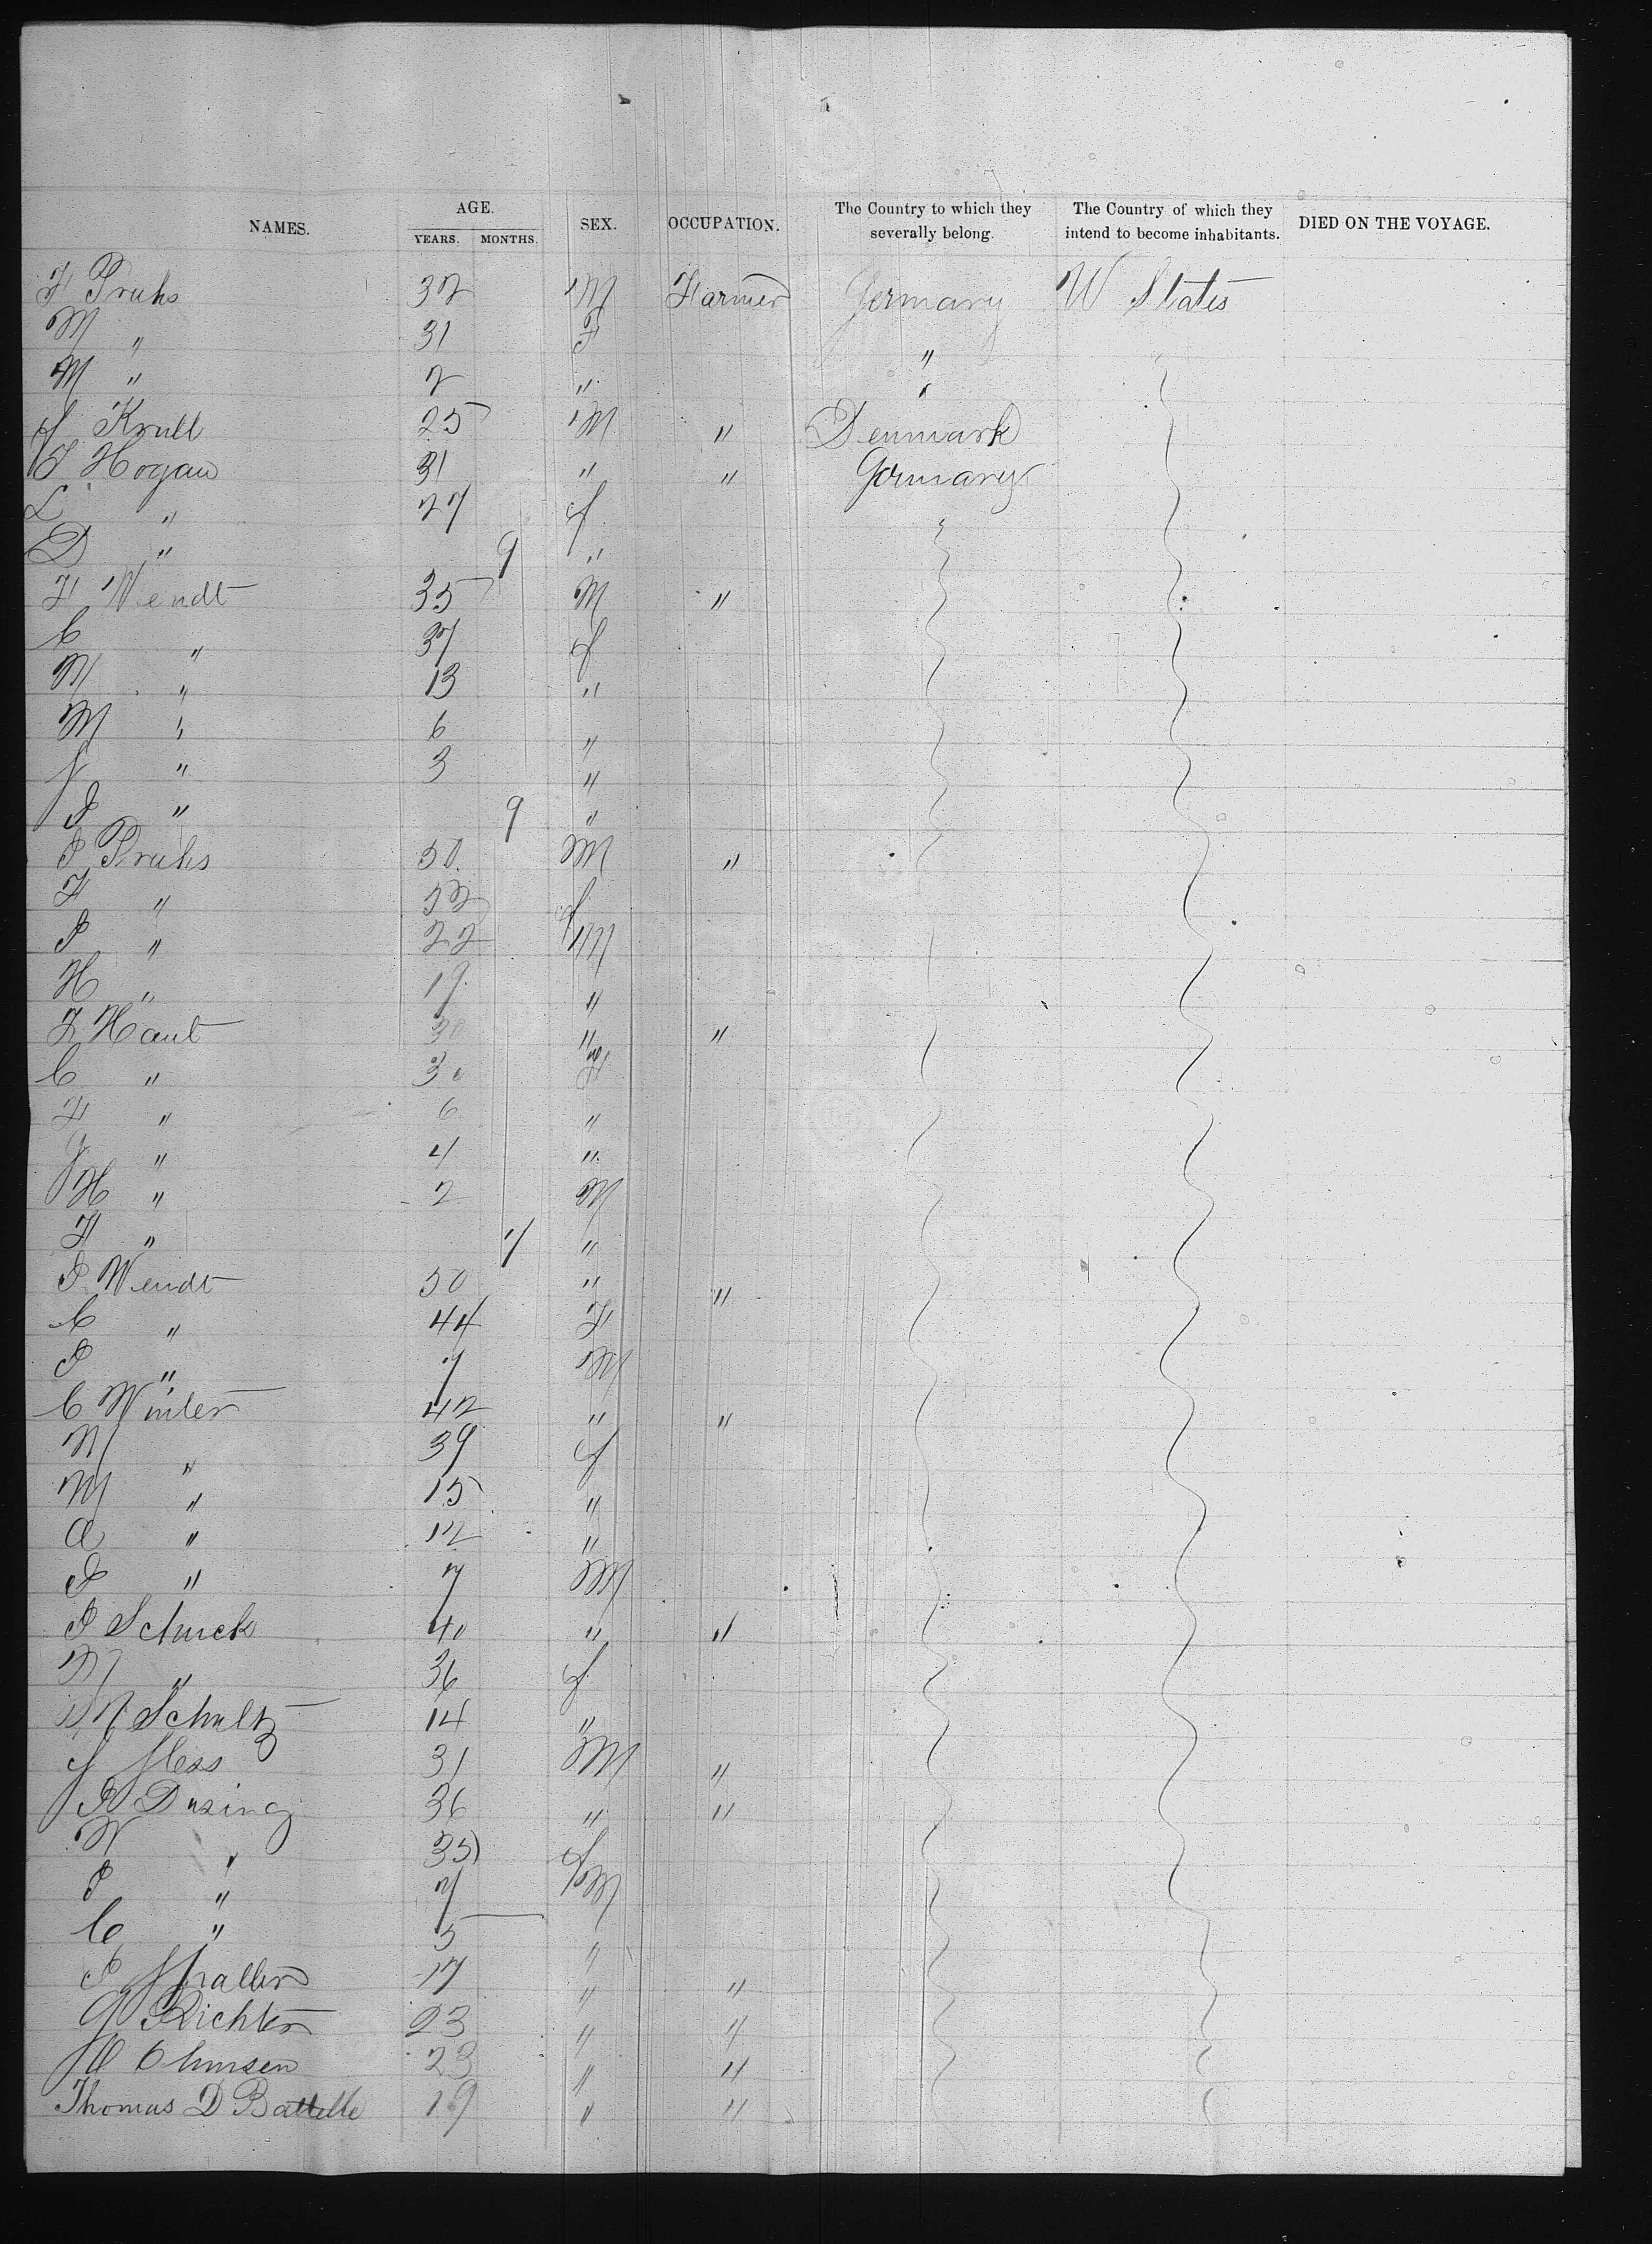 NAMES. AGE. YEARS. MONTHS. SEX. OCCUPATION. The Country to which they severally belong. The Country of which they intend to become inhabitants. DIED ON THE VOYAGE.
F Pruhs 32 M Farmer Germany U States
M " 31 F "
M " 2 " "
J Krull 25 M " Denmark
J Hogan 31 " " Germany
L " 27 f
D " 9 "
F Wendt 35 M "
C " 37 f
M " 13 "
M " 6 "
J " 3 "
P " 9 "
P Pruhs 50 M "
F " 52 f
P " 22 M
H " 19 "
F Haut 30 " "
C " 30 F
F " 6 "
J " 4 "
H " 2 M
F " 7 "
P Wendt 50 " "
C " 44 F
P " 7 M
C Winter 42 " "
M " 39 f
M " 15 "
A " 12 "
P " 7 M
P Schuck 40 " "
M " 36 f
M Schultz 14 "
J 31 M "
P Dusing 36 " "
W " 35 f
P " 7 M
C " 5 "
P 17 " "
G Richter 23 " "
23 " "
Thomas D Battelle 19 " "